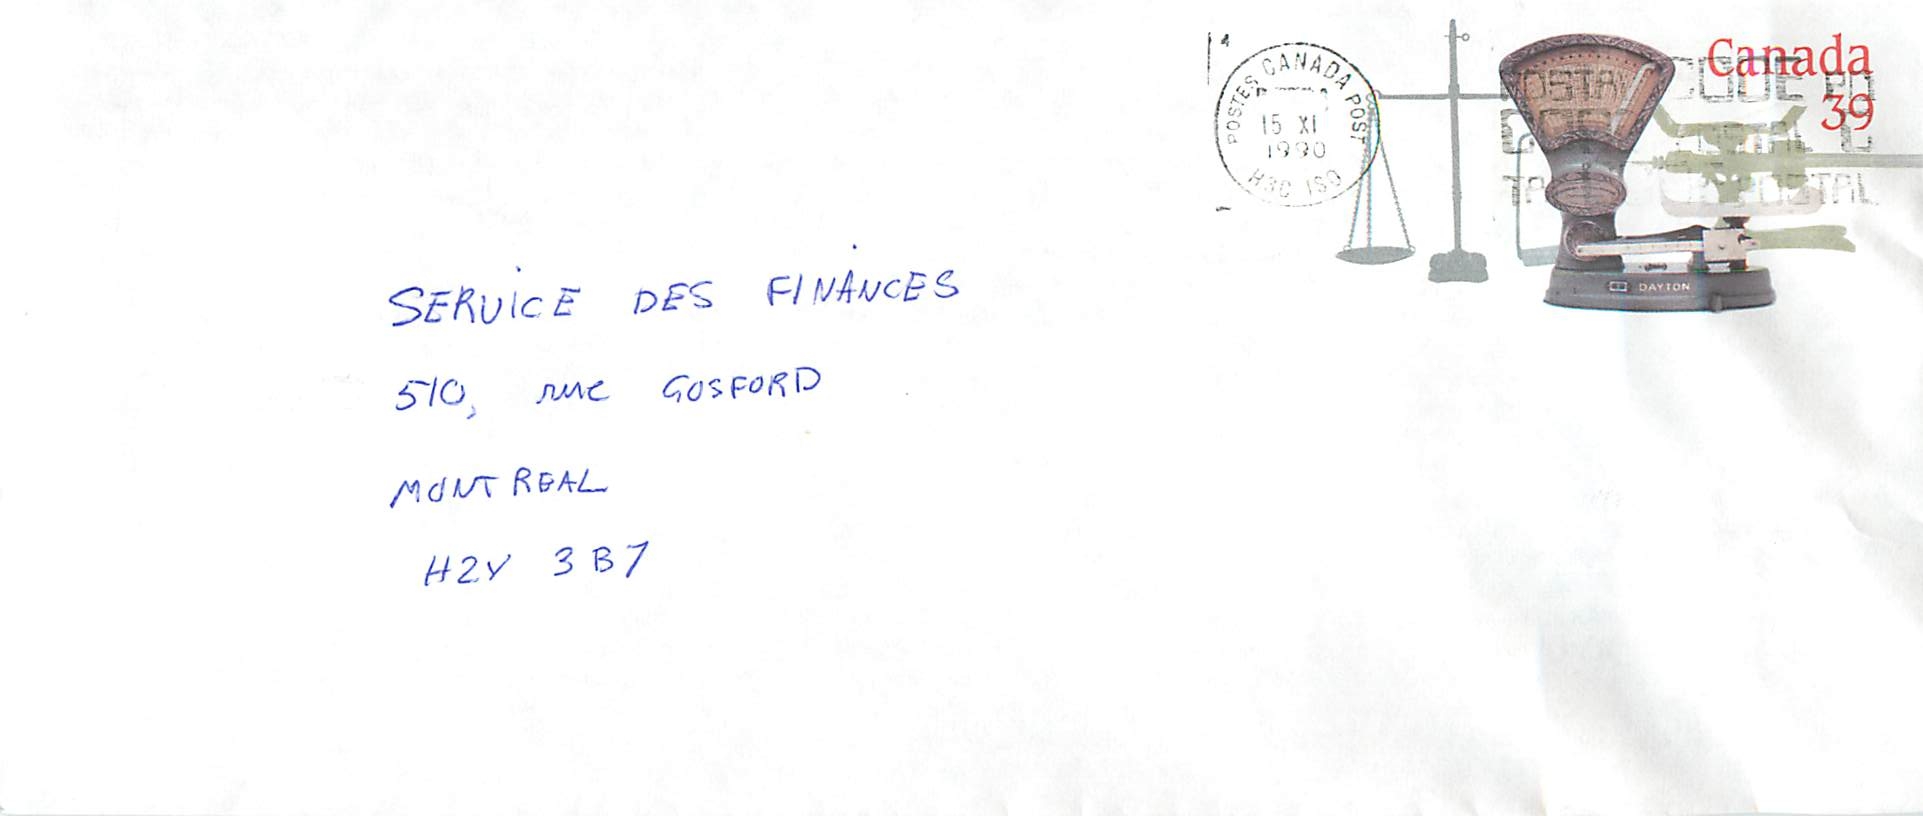 POSTES CANADA POST
15 XI
1990
Canada
39
POSTAL CODE
POSTAL
DAYTON
SERVICE DES FINANCES
510, rue GOSFORD
MONTREAL
H2Y 3B7